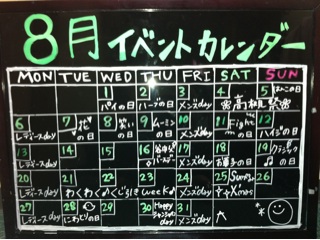 8月イベントカレンダー
MON TUE WED THU FRI SAT SUN
1 2 3 4 5
パイの日 ハーブの日 メンズday
6 7 8 9 10 11 12
レディースday 花の日 ムーミンの日 メンズday ハイジの日
13 14 15 16 17 18 19
レディースday メンズday お菓子の日 クラシックの日
20 21 22 23 24 25 26
レディースday わくわくくじ引きweek メンズday Summer X'mas
27 28 29 30 31
レディースday にわとりの日 Happy メンズday